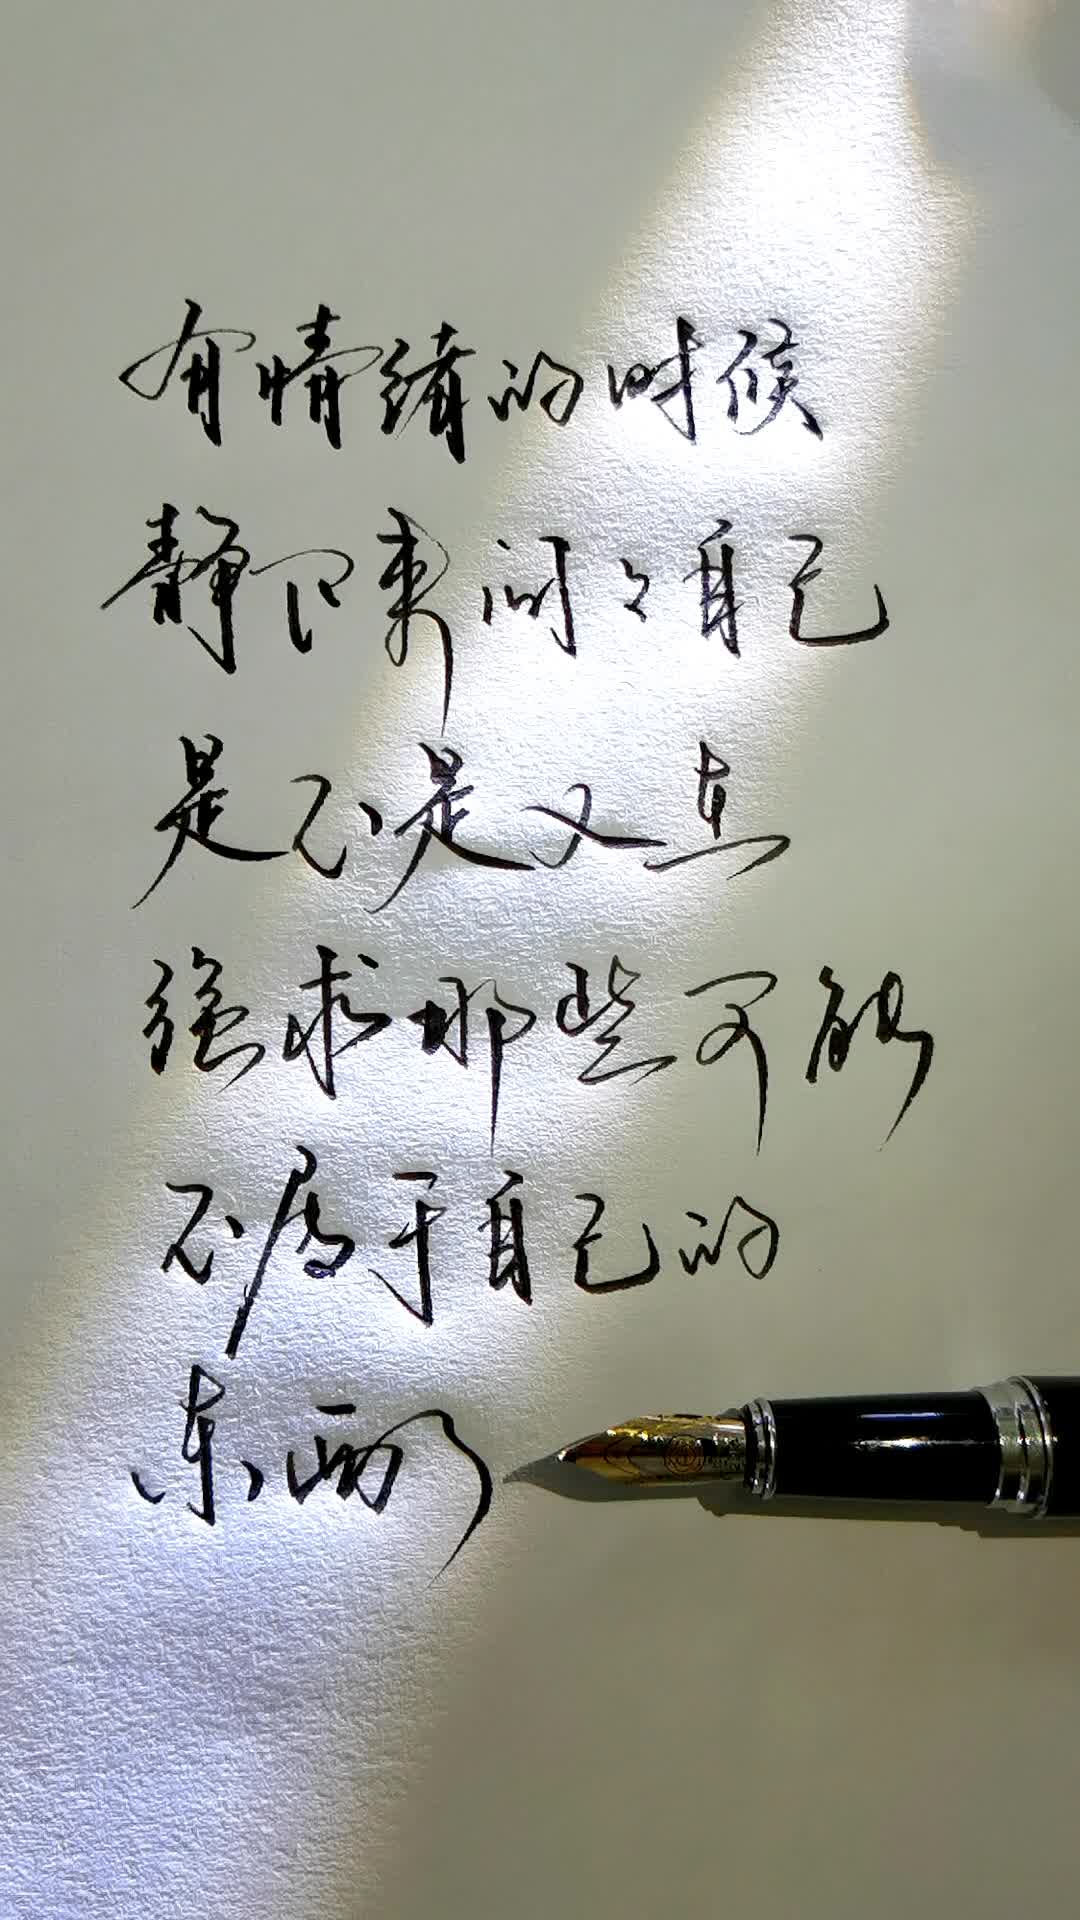 有情绪的时候
静下来问问自己
是不是又在
强求那些可能
不属于自己的
东西了